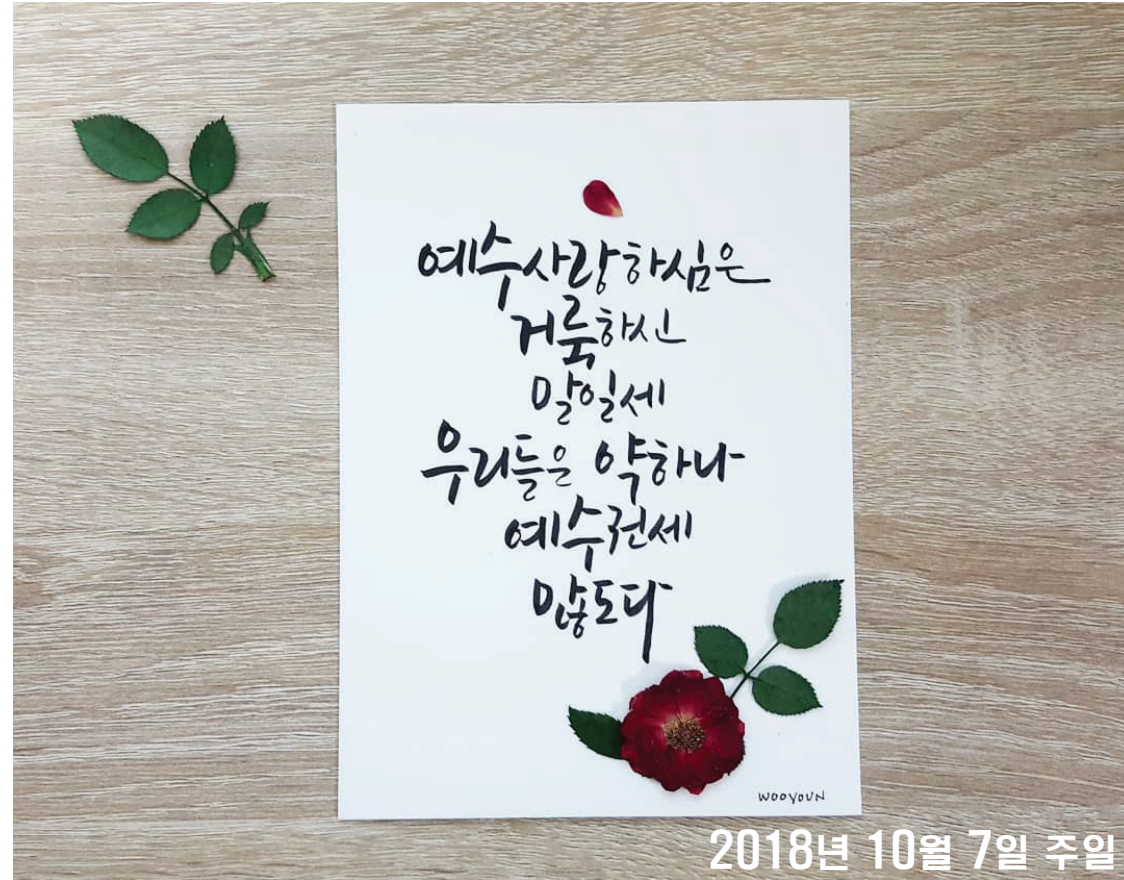 예수사랑하심은
거룩하신
말일세
우리들은 약하나
예수권세
많도다
WOOYOUN
2018년 10월 7일 주일